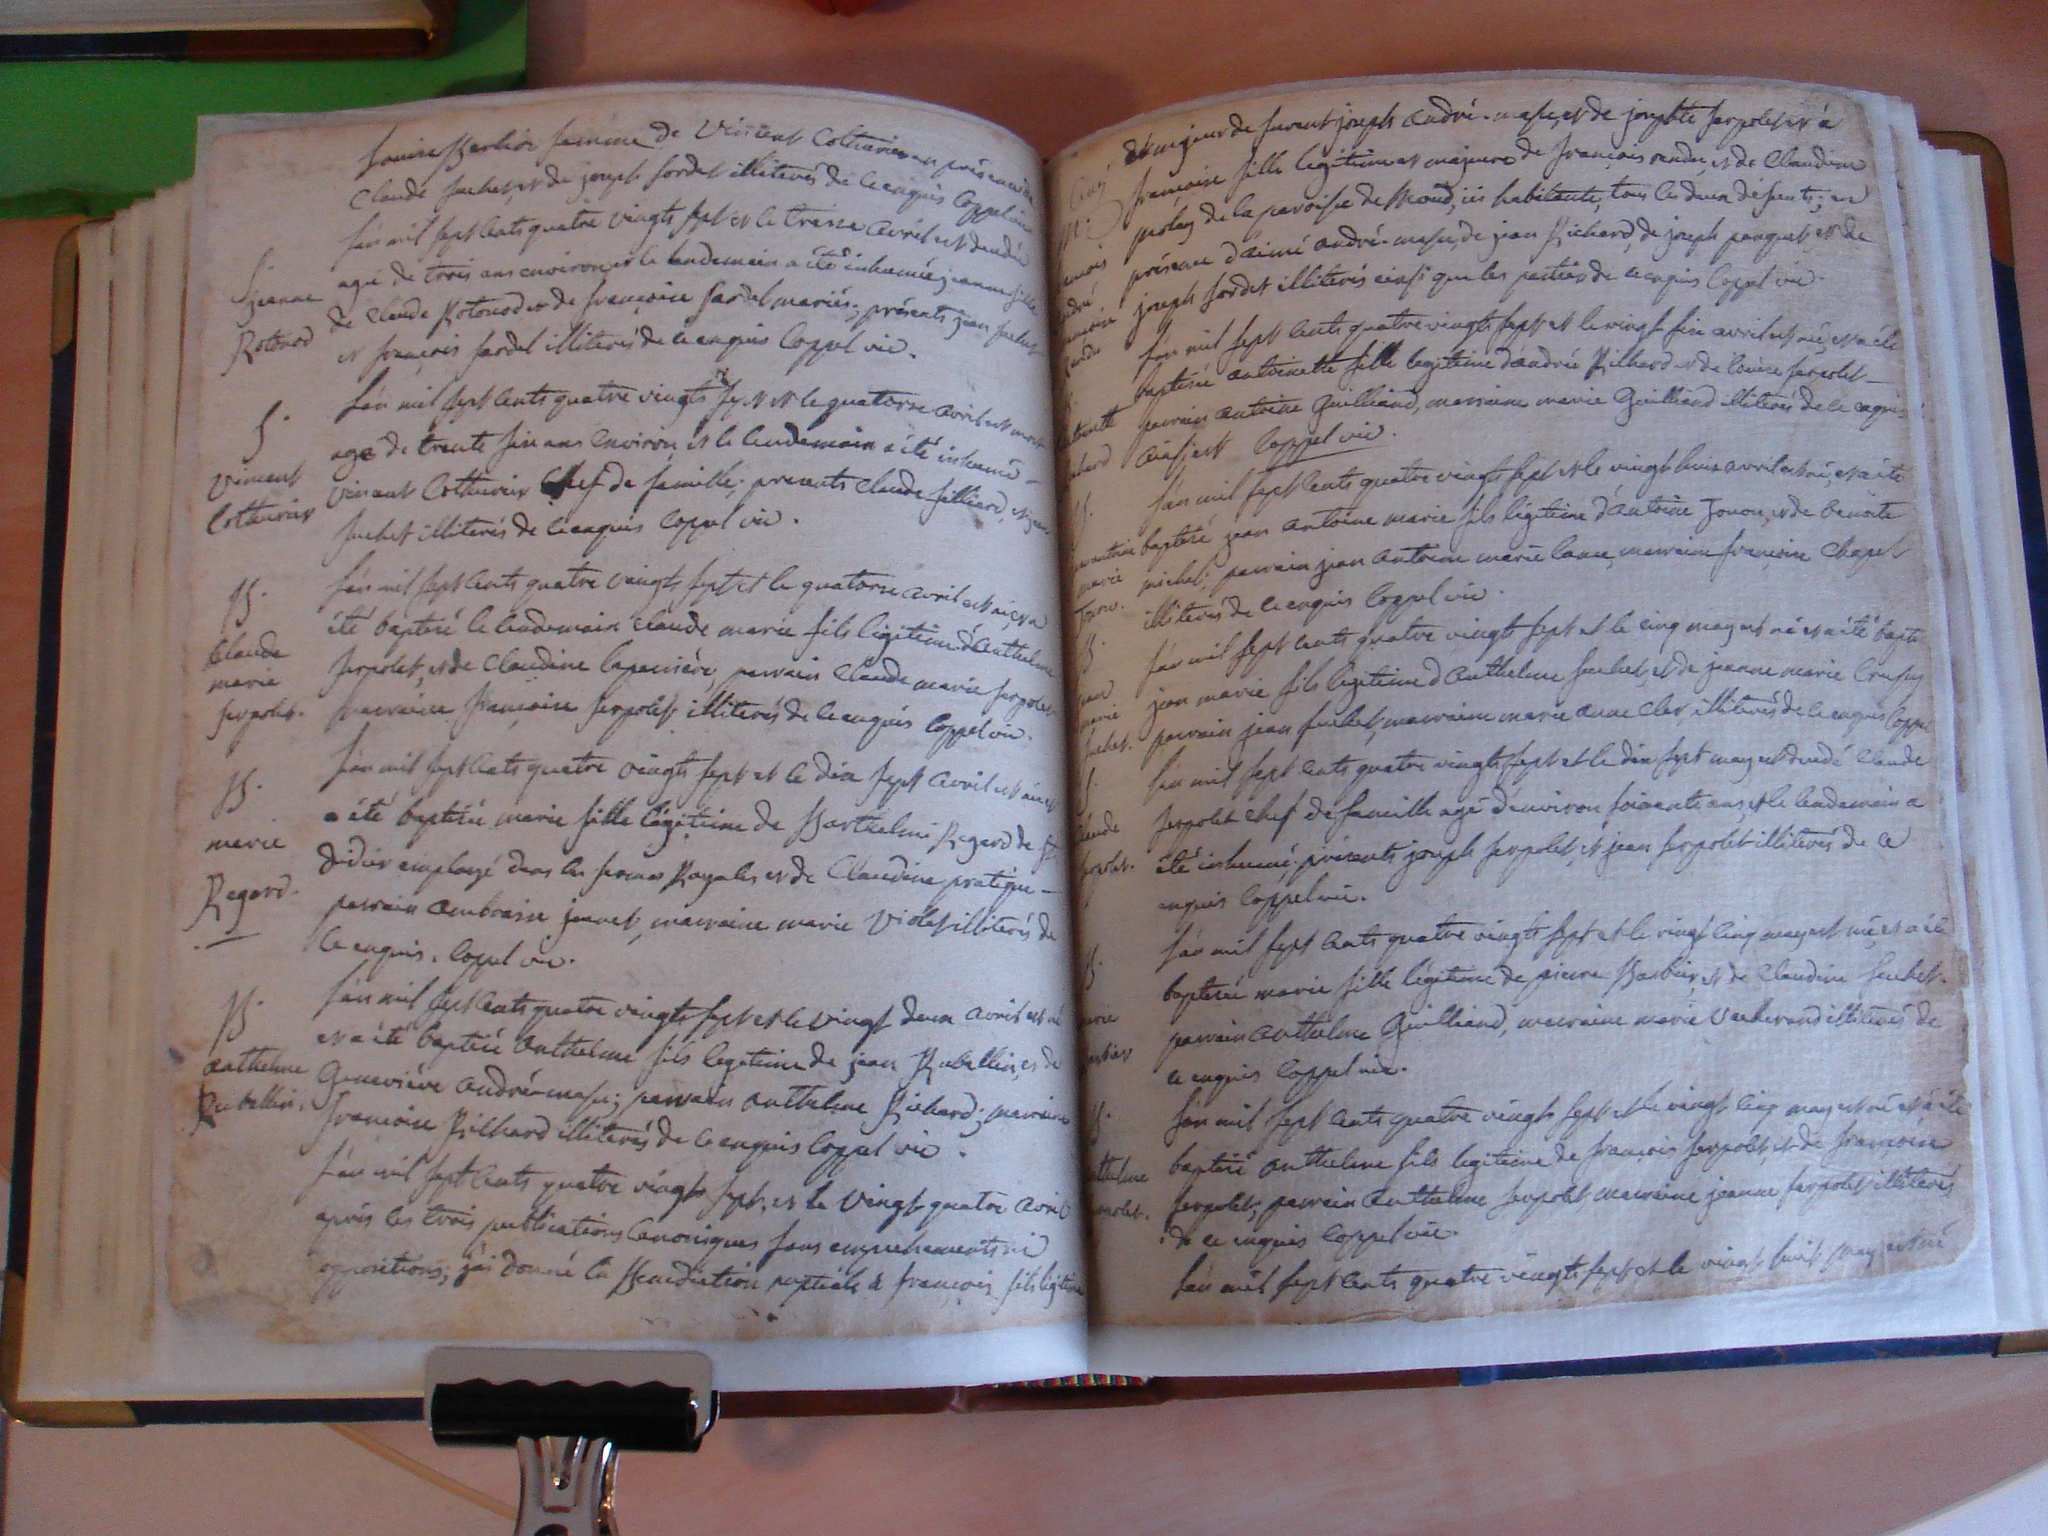 Louise Berlioz femme de Vincent Cotterier en présence de
Claude Suchet, et de joseph Sordet illiterés de ce enquis Coppel vic
L'an mil sept cents quatre vingts sept et le treize avril est decedée
agé de trois ans environ et le lendemain a été inhumée jeanne fille
de Claude Rotonod et de françoise Sardel mariés; présents jean Suchet
et françois Sardel illiterés de ce enquis Coppel vic.
Jeanne
Rotonod
L'an mil sept cents quatre vingts sept et le quatorze avril est mort
age de trente six ans environ, et le lendemain a été inhumé
vincent Cotterier Chef de famille; presents Claude Silliard, et jean
Suchet illiterés de ce enquis Coppel vic.
S.
Vincent
Cotterier
L'an mil sept cents quatre vingts sept et le quatorze avril est né, et a
été baptisé le lendemain Claude marie fils légitime d'Anthelme
Serpolet, et de Claudine , parrain Claude marie Serpolet
marraine françoise Serpolet illiterés de ce enquis Coppel vic.
B.
Claude
marie
Serpolet.
L'an mil sept cents quatre vingts sept et le dix sept avril est née et
a été baptisée marie fille légitime de Barthelmi Regard de St
didier employé dans les fermes Royales et de Claudine pratique
parrain ambroise jeannet, marraine marie Violet illiterés de
ce enquis. Coppel vic.
B.
marie
Regard.
L'an mil sept cents quatre vingts sept et le vingt deux avril est né
et a été baptisé Anthelme fils legitime de jean Rubellin, et de
Geneviève andré-masse; parrain anthelme Richard; marraine
francoise Richard illiterés de ce enquis Coppel vic.
B.
anthelme
Rubellin.
L'an mil sept cents quatre vingts sept, et le vingt quatre avril
après les trois publications canoniques sans empechements ni
oppositions, j'ai donné la Benediction nuptiale à françois fils légitime
et majeur de feu joseph andré-masse, et de josephte Serpolet et à
françoise fille legitime et majeure de françois rendu, et de Claudine
de la paroisse de , ici habitante, tous les deux défunts; en
présence d'aimé andré-masse, de jean Richard, de joseph panguet, et de
joseph Sordet illiterés ainsi que les parties de ce enquis Coppel vic.
L'an mil sept cents quatre vingts sept et le vingt six avril est née, et a été
baptisée antoinette fille legitime d'andré Richard et de louise Serpolet
parrain antoine Guilliand, marraine marie Guilliand illiterés de ce enquis
ainsi est Coppel vic.
L'an mil sept cents quatre vingts sept et le vingt huit avril est né, et a été
baptisé jean antoine marie fils légitime d'antoine Jonon, et de benoite
michel; parrain jean antoine marie , marraine françoise Chapel
illiterés de ce enquis Coppel vic.
L'an mil sept cents quatre vingts sept et le cinq may est né et a été baptisé
jean marie fils légitime d'Anthelme Suchet, et de jeanne marie Crussy
parrain jean Suchet, marraine marie anne Cler, illiterés de ce enquis Coppel
L'an mil sept cents quatre vingts sept et le dix sept may est decedé Claude
Serpolet chef de famille agé d'environ soixante ans, et le lendemain a
été inhumé; présents joseph Serpolet, et jean Serpolet illiterés de ce
enquis Coppel vic.
L'an mil sept cents quatre vingts sept et le vingt cinq may est née, et a été
baptisée marie fille légitime de pierre Barbier, et de Claudine Suchet.
parrain anthelme Guilliand, marraine marie illiterés de
ce enquis Coppel vic.
L'an mil sept cents quatre vingts sept et le vingt cinq may est né et a été
baptisé anthelme fils legitime de françois Serpolet, et de françoise
Serpolet; parrain anthelme Serpolet marraine jeanne Serpolet illiterés
de ce enquis Coppel vic.
L'an mil sept cents quatre vingts sept et le vingt huit may est né